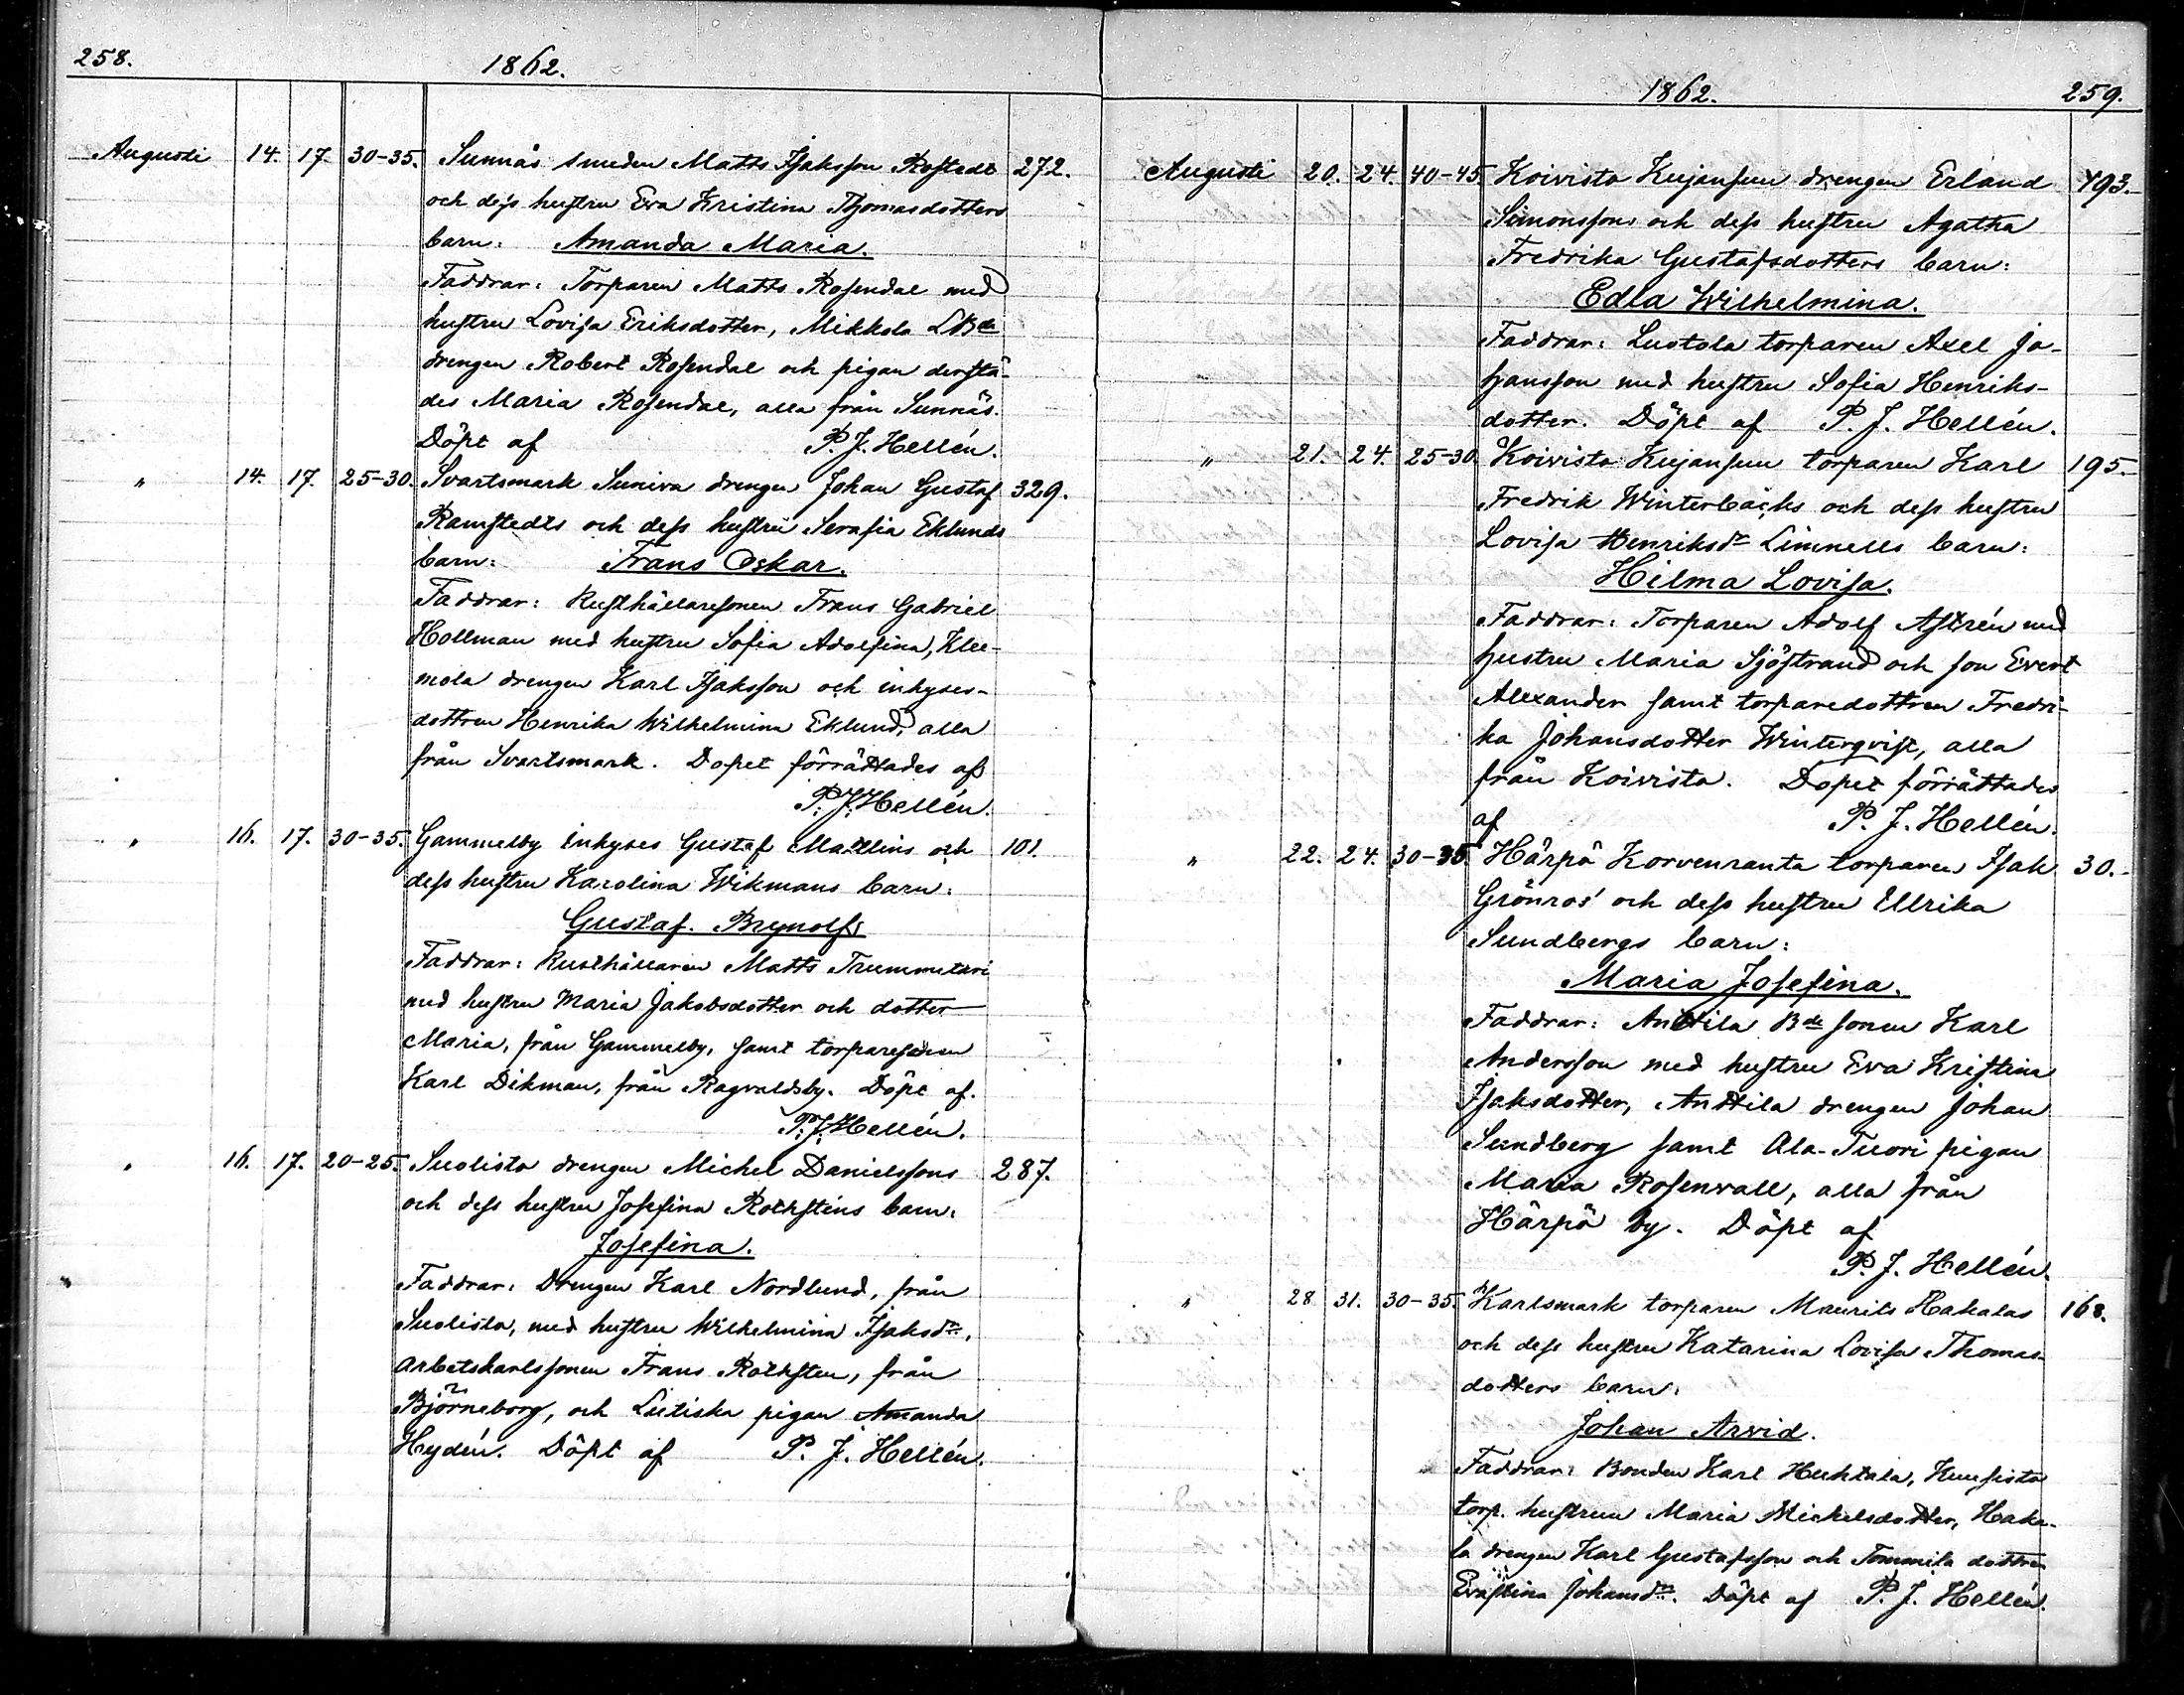 258.
1862.
Augusti 14. 17. 30-35. Sunnäs smeden Matts Isaksson Rostedt 272.
och dess hustru Eva Kristina Thomasdotters
barn: Amanda Maria.
Faddrar: Torparen Matts Rosendal med
hustru Lovisa Eriksdotter, Mikkola LBde
drengen Robert Rosendal och pigan derstä-
des Maria Rosendal, alla från Sunnäs.
Döpt af P. J. Hellén.
" 14. 17. 25-30. Svartsmark Suniva drengen Johan Gustaf 329.
Ramstedts och dess hustru Serafia Eklunds
barn: Frans Oskar.
Faddrar: Rusthållaresonen Frans Gabriel
Hollman med hustru Sofia Adolfina, Klee-
mola drengen Karl Isaksson och inhyses-
dottren Henrika Wilhelmina Eklund, alla
från Svartsmark. Dopet förrättades af
P. J. Hellén.
" 16. 17. 30-35. Gammelby inhyses Gustaf Mallins och 101.
dess hustru Karolina Wikmans barn:
Gustaf Brynolf.
Faddrar: Rusthållaren Matts Trummetari
med hustru Maria Jakobsdotter och dotter
Maria, från Gammelby, samt torparesonen
Karl Dikman, från Ragvaldsby. Döpt af.
P. J. Hellén.
" 16. 17. 20-25. Suolisto drengen Michel Danielssons 287.
och dess hustru Josefina Rothsténs barn:
Josefina.
Faddrar: Drengen Karl Nordlund, från
Suolisto, med hustru Wilhelmina Isaksdr,
arbetskarlssonen Frans Rothsten, från
Björneborg, och Lutiska pigan Amanda
Hydén. Döpt af P. J. Hellén.
1862.
259.
Augusti 20. 24. 40-45. Koivisto Kujansuu drengen Erland 193.
Simonssons och dess hustru Agatha
Fredrika Gustafsdotters barn:
Edla Wilhelmina.
Faddrar: Luotola torparen Axel Jo-
hansson med hustru Sofia Henriks-
dotter. Döpt af P. J. Hellén.
" 21. 24. 25-30. Koivisto Kujansuu torparen Karl 195.
Fredrik Winterbäcks och dess hustru
Lovisa Henriksdr Limnells barn:
Hilma Lovisa.
Faddrar: Torparen Adolf Astrén med
hustru Maria Sjöstrand och son Evert
Alexander samt torparedottren Fredri-
ka Johansdotter Winterqvist, alla
från Koivisto. Dopet förrättades
af P. J. Hellén.
" 22. 24. 30-35. Härpö Korvenranta torparen Isak 30.
Grönros' och dess hustru Ulrika
Sundbergs barn:
Maria Josefina.
Faddrar: Anttila Bde sonen Karl
Andersson med hustru Eva Kristina
Isaksdotter, Anttila drengen Johan
Sundberg samt Ala-Tuori pigan
Maria Rosenvall, alla från
Härpö by. Döpt af
P. J. Hellén.
" 28 31. 30-35. Karlsmark torparen Maurits Hakalas 168.
och dess hustru Katarina Lovisa Thomas-
dotters barn:
Johan Arvid.
Faddrar: Bonden Karl Huhtala, Kuusisto
torp. hustrun Maria Michelsdotter, Haka-
la drengen Karl Gustafsson och Tommila dottren
Evastina Johansdr. Döpt af P. J. Hellén.